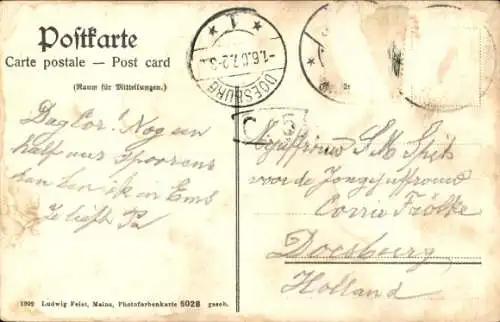 Postkarte
Carte postale — Post card
(Raum für Mitteilungen.)
DOESBURG
-1.6.0 7.2-3
Dag Cor! Nog een
half uur spoorens
dan ben ik in Ems
Je liefh Pa
Juffrouw S M Spit
voor de Jongejuffrouw
Corrie Frölke
Doesburg
Holland
1909 Ludwig Feist, Mainz, Photofarbenkarte 5028 gesch.